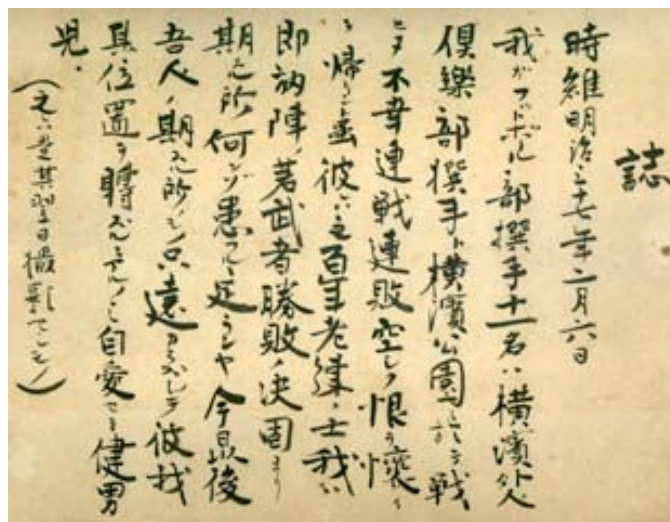 誌
時維明治三十七年二月六日
我がフットボール部撰手十一名ハ横濱外人
倶樂部撰手ト横濱公園ニ於テ戦
ヒタ不幸連戦連敗空シク恨ヲ懐イ
テ帰リシト雖彼ハ之百年老練ノ士我ハ
即初陣ノ若武者勝敗ノ決固ヨリ
期スル所何ンゾ患フルニ足ランヤ今最後
吾人ノ期スル所ノモノハ遠カラズシテ彼我
其位置ヲ轉ズルニアルノミ自愛セヨ健男
児.
(之ハ其翌日撮影セシモノ)